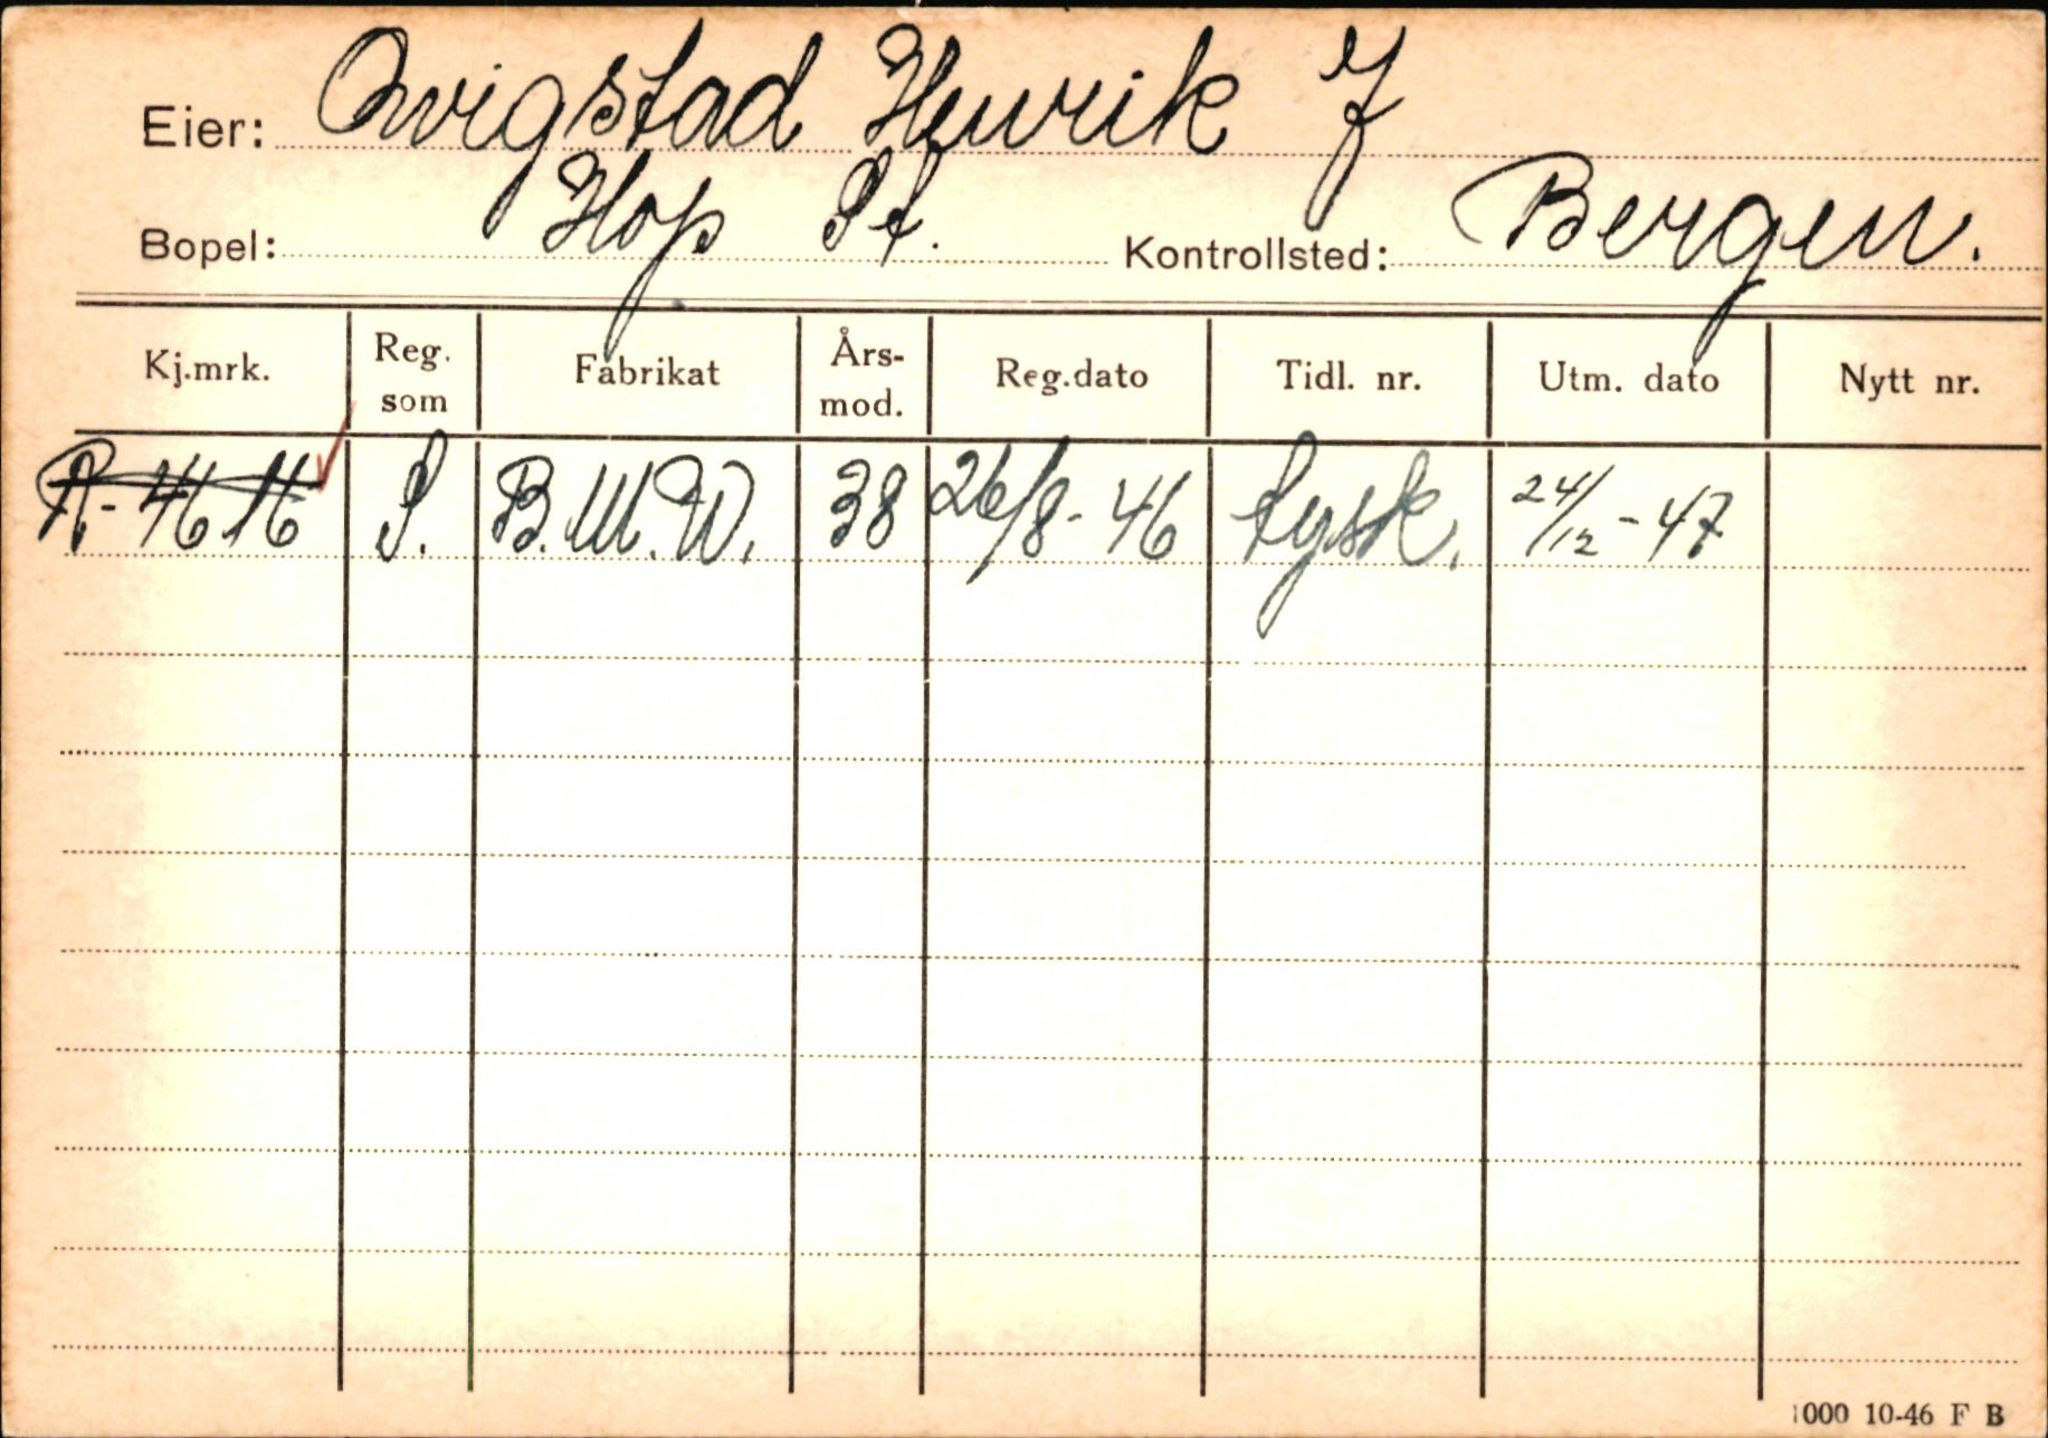 Eier: Qvigstad Henrik J
Bopel: Hop St. Kontrollsted: Bergen.
Kj.mrk. Reg. som Fabrikat Års-mod. Reg.dato Tidl. nr. Utm. dato Nytt nr.
R-4616 P. B.M.W. 38 26/8-46 tysk. 24/12-47
1000 10-46 F B